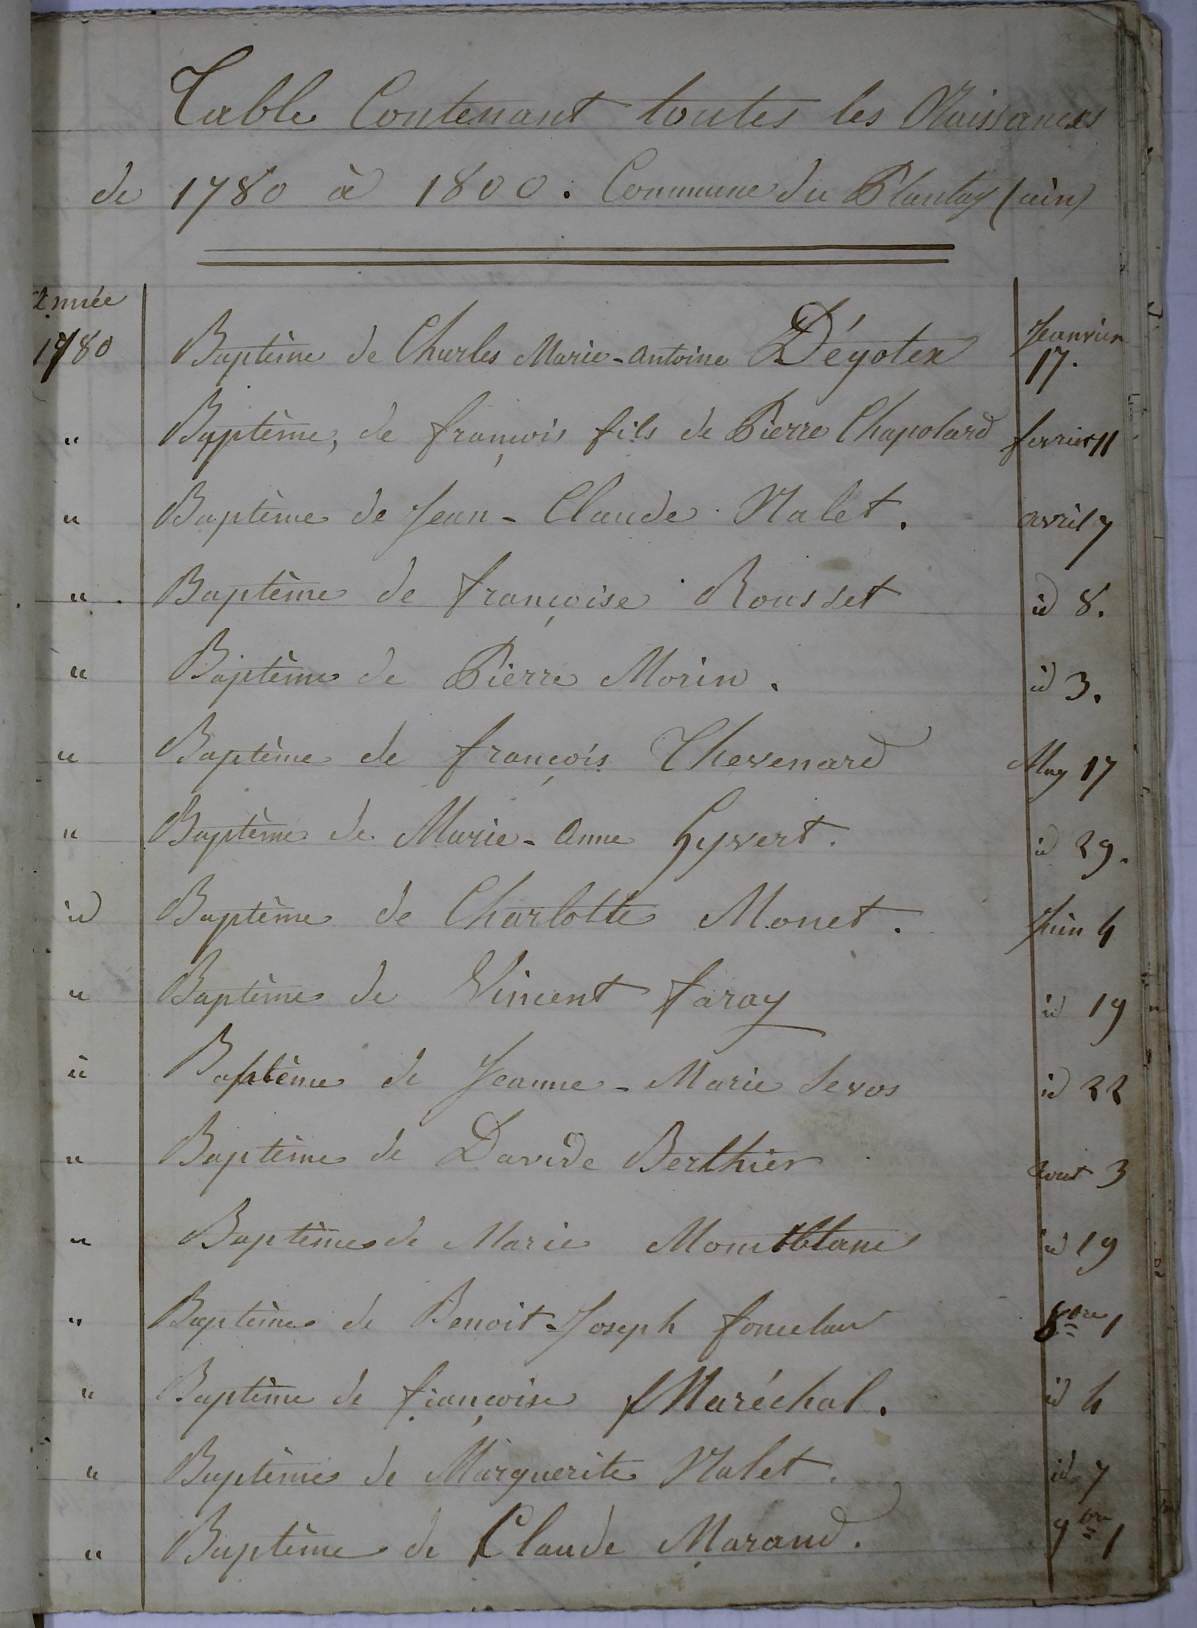 Table Contenant toutes les Naissances
de 1780 à 1800. Commune du Plantay (ain)
Année
1780 Baptême de Charles Marie-Antoine Dégotex Jeanvier 17.
" Baptême, de françois fils de Pierre Chapolard fevrier 11
" Baptême de Jean-Claude Nalet. avril 7
" Baptême de françoise Rousset id 8.
" Baptême de Pierre Morin. id 3.
" Baptême de françois Thevenard May 17
" Baptême de Marie-Anne Gyvert. id 29.
id Baptême de Charlotte Monet. Juin 4
" Baptême de Vincent faray id 19
" Baptême de Jeanne-Marie Servos id 22
" Baptême de Davide Berthier aout 3
" Baptême de Marie Montblanc id 19
" Baptême de Benoit-Joseph 8bre 1
" Baptême de françoise Maréchal. id 4
" Baptême de Marguerite Nalet. id 7
" Baptême de Claude Marand. 9bre 1